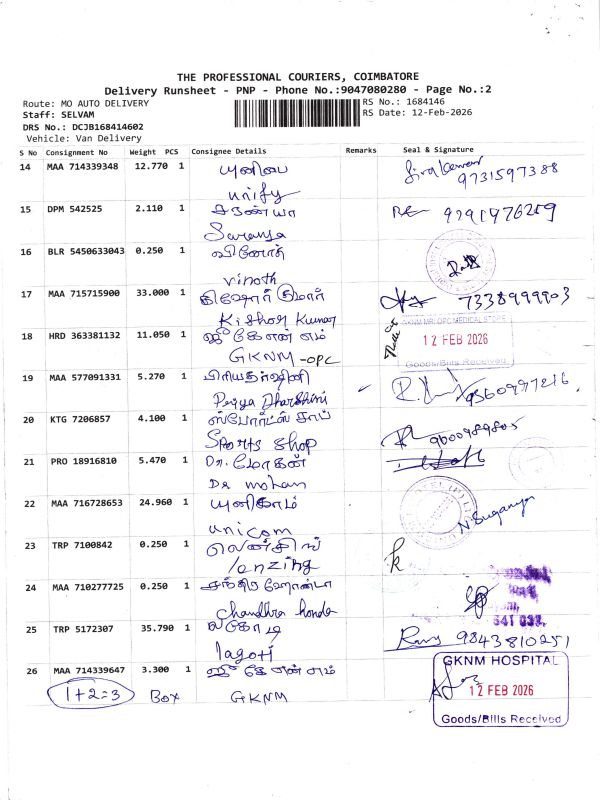 THE PROFESSIONAL COURIERS, COIMBATORE
Delivery Runsheet - PNP - Phone No.:9047080280 - Page No.:2
Route: MO AUTO DELIVERY
RS No.: 1684146
Staff: SELVAM
RS Date: 12-Feb-2026
DRS No.: DCJB168414602
Vehicle: Van Delivery
S No Consignment No Weight PCS Consignee Details Remarks Seal & Signature
14 MAA 714339348 12.770 1 யுனிபை
unify
9731597388
15 DPM 542525 2.110 1 சரண்யா
Saranya
16 BLR 5450633043 0.250 1 வினோத்
vinoth
17 MAA 715715900 33.000 1 கிஷோர் குமார் 7338999903
Kishor Kumar
18 HRD 363381132 11.050 1 ஜீ கே என் எம்
GKNM -OPC
GKNM MRI OPC MEDICAL STORE
12 FEB 2026
Goods/Bills Received
19 MAA 577091331 5.270 1 பிரியதர்ஷினி
Priya Dharshini
9360997216.
20 KTG 7206857 4.100 1 ஸ்போர்ட்ஸ் சாப்
Sports shop
9600989805
21 PRO 18916810 5.470 1 Dr. மோகன்
Dr mohan
22 MAA 716728653 24.960 1 யுனிகாம்
unicom
N Suganya
23 TRP 7100842 0.250 1 லென்சிங்
lenzing
24 MAA 710277725 0.250 1 சந்திர ஹோண்டா
Chandhra honda
641 033.
25 TRP 5172307 35.790 1 லகோடி
lagoti
9843810251
26 MAA 714339647 3.300 1 ஜீ கே என் எம்
1+2=3 Box GKNM
GKNM HOSPITAL
12 FEB 2026
Goods/Bills Received